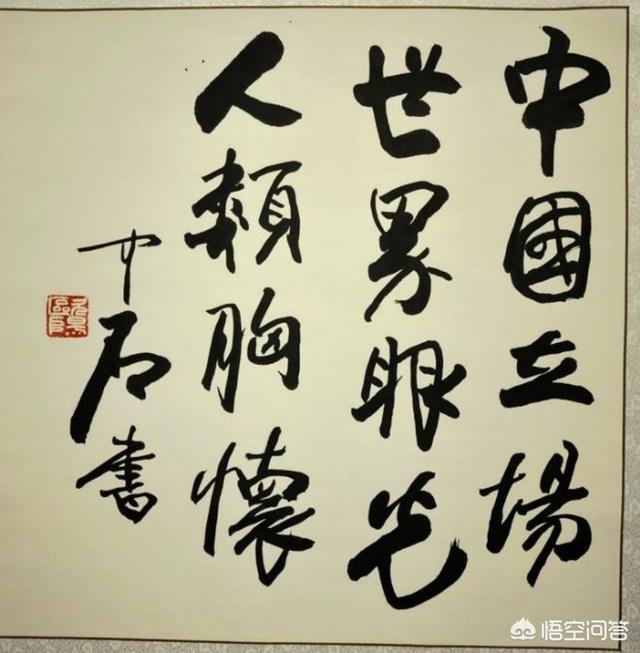 中國立場
世界眼光
人類胸懷
中石書
悟空问答